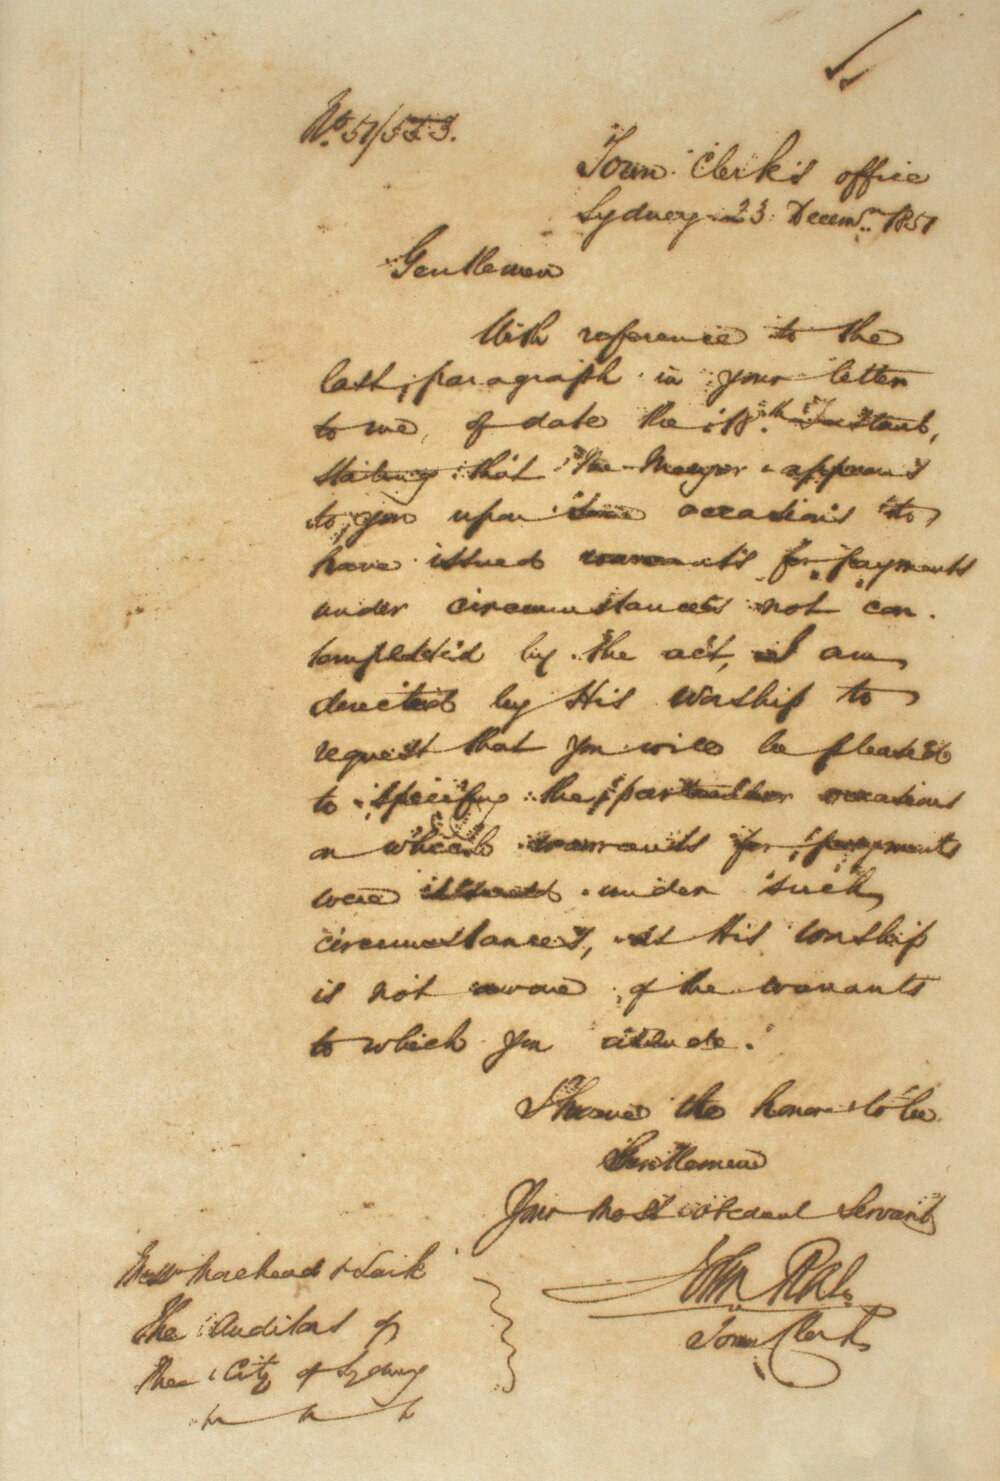 No. 51/553.
Town Clerk's office
Sydney 23 Decemr. 1851
Gentlemen
With reference to the
last paragraph in your letter
to me, of date the 18th Instant,
stating that the Mayor appears
to you upon some occasions to
have issued warrants for payments
under circumstances not con-
templated by the act, I am
directed by His Worship to
request that you will be pleased
to specify the particular occasions
on which warrants for payments
were issued under such
circumstances, as His Worship
is not aware of the warrants
to which you allude.
I have the honor to be
Gentlemen
Your most obedient Servant
John
Town Clerk
Messrs Morehead &
The Auditors of
the City of Sydney